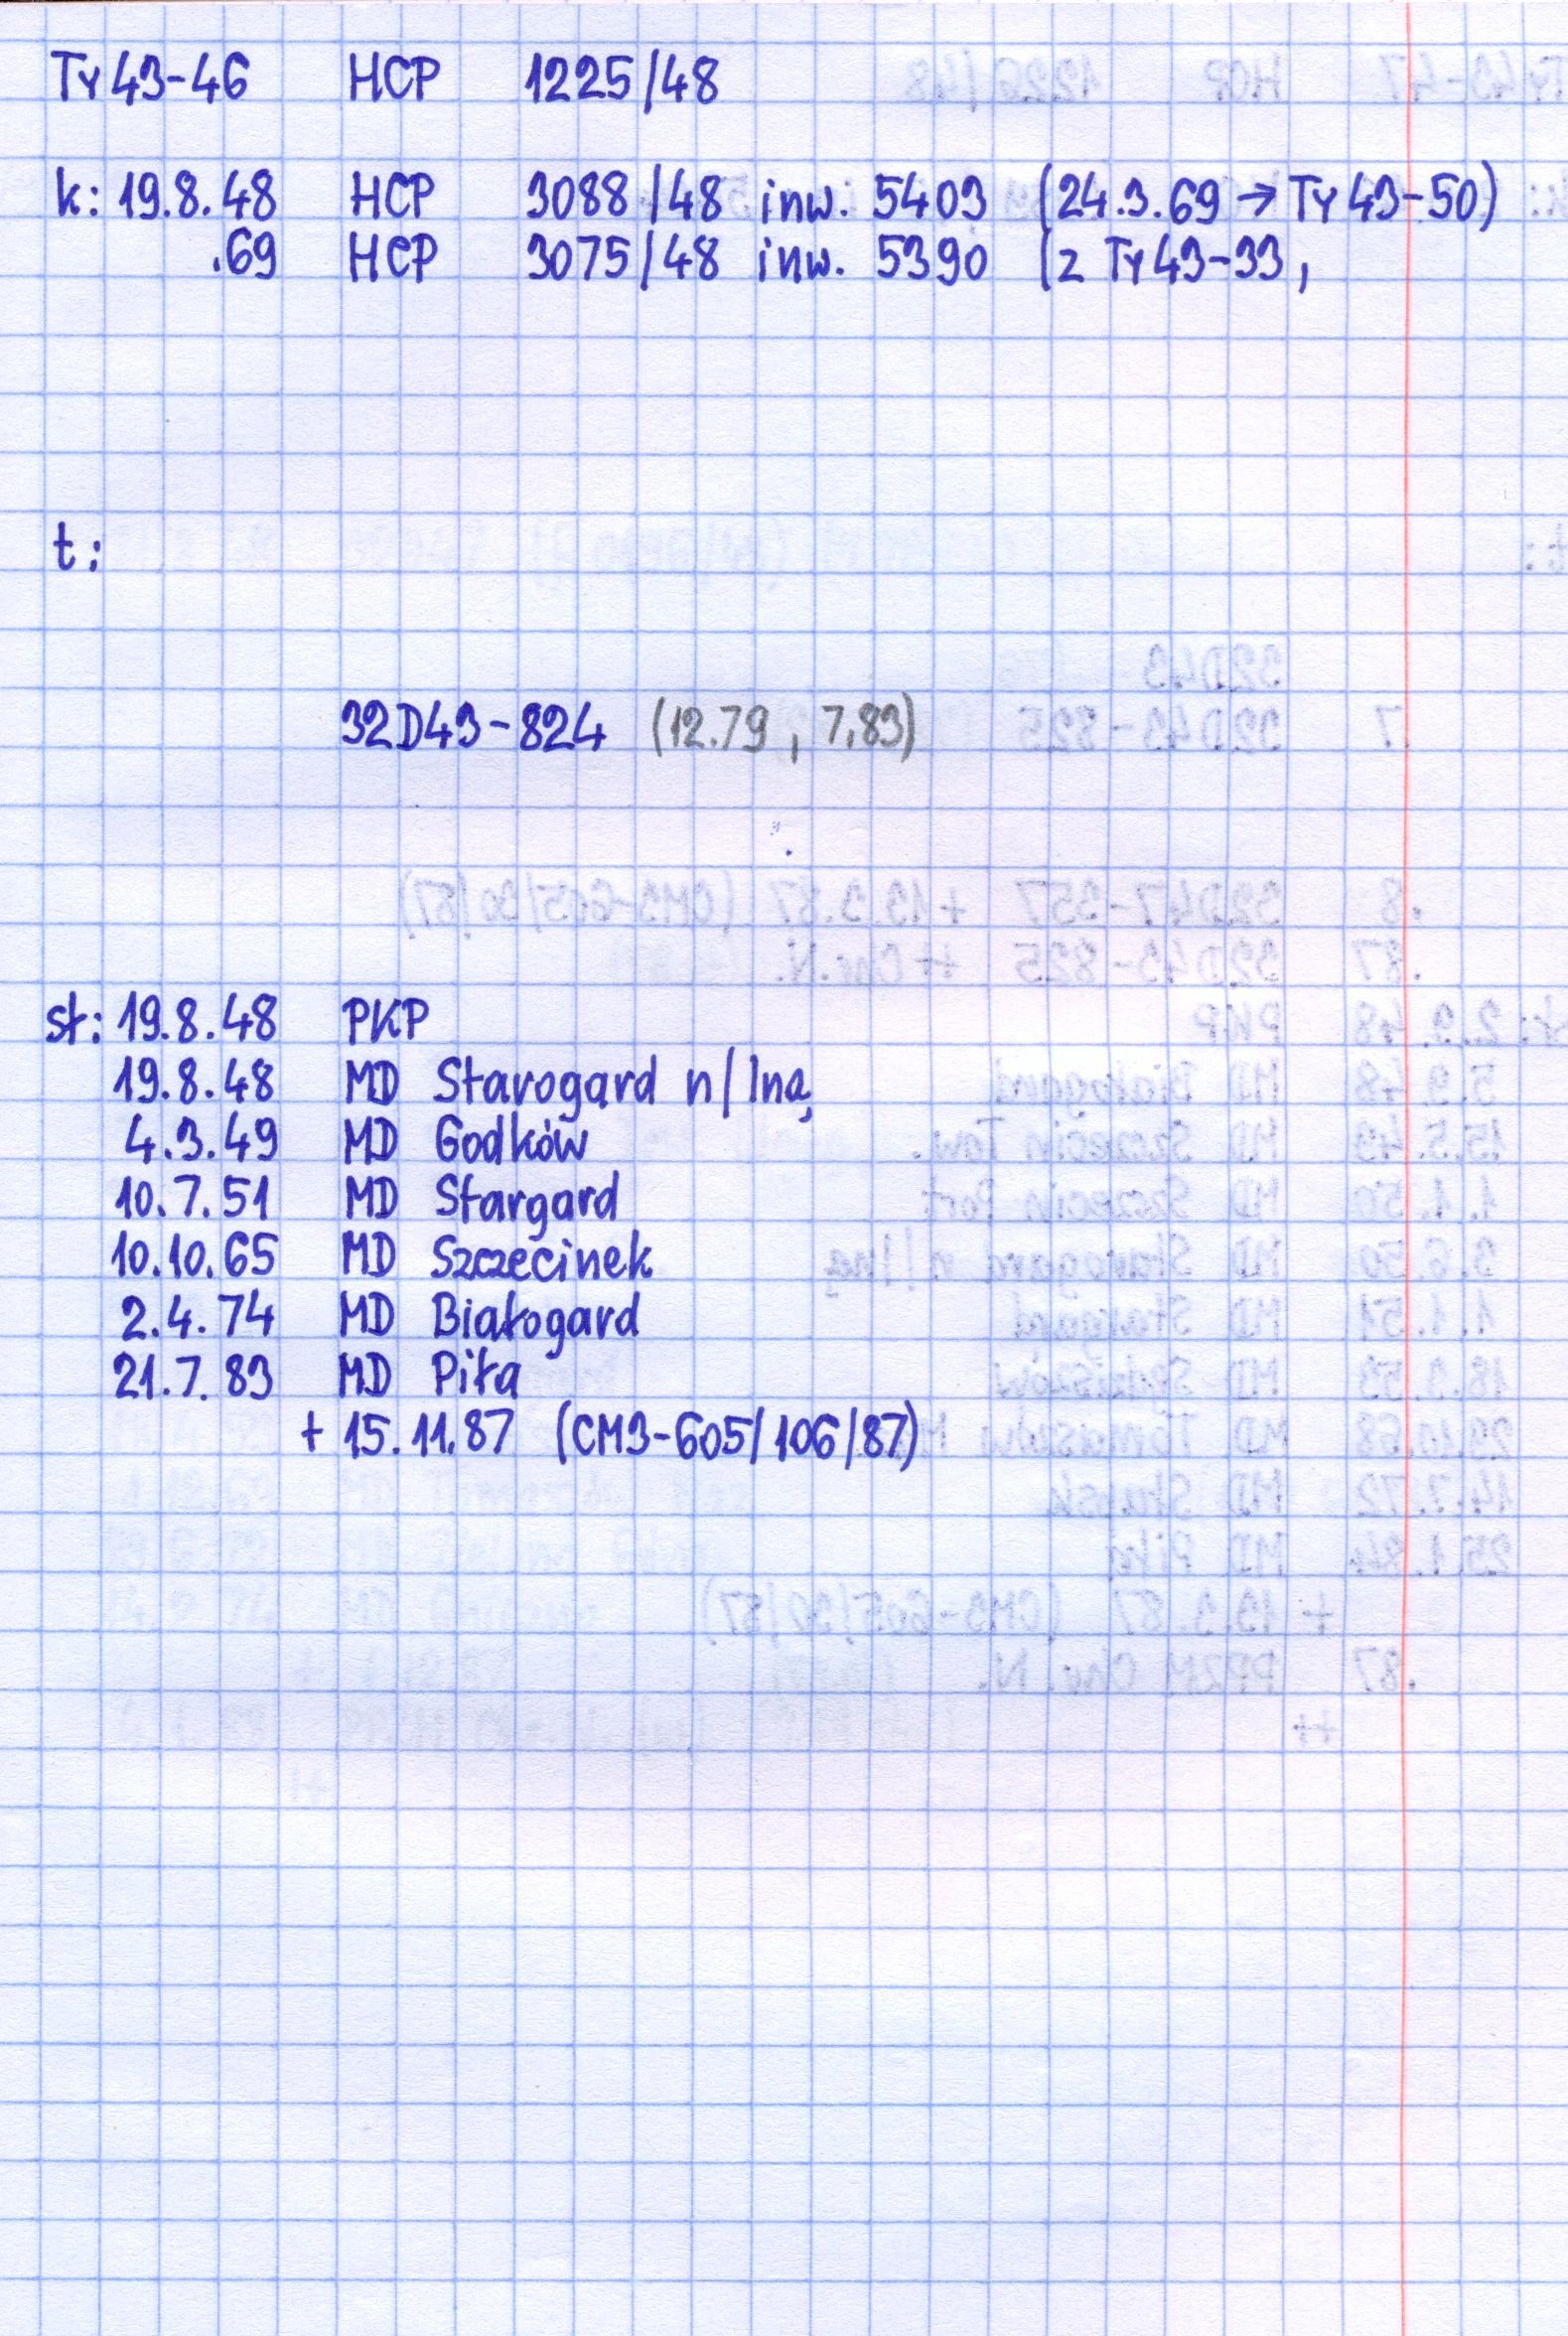 Ty43-46 HCP 1225/48
k: 19.8.48 HCP 3088/48 inw. 5403 (24.3.69 → Ty43-50)
.69 HCP 3075/48 inw. 5390 (z Ty43-33,
t:
32D43-824 (12.79, 7.83)
st: 19.8.48 PKP
19.8.48 MD Starogard n/Iną
4.3.49 MD Godków
10.7.51 MD Stargard
10.10.65 MD Szczecinek
2.4.74 MD Białogard
21.7.83 MD Piła
+ 15.11.87 (CM3-605/106/87)